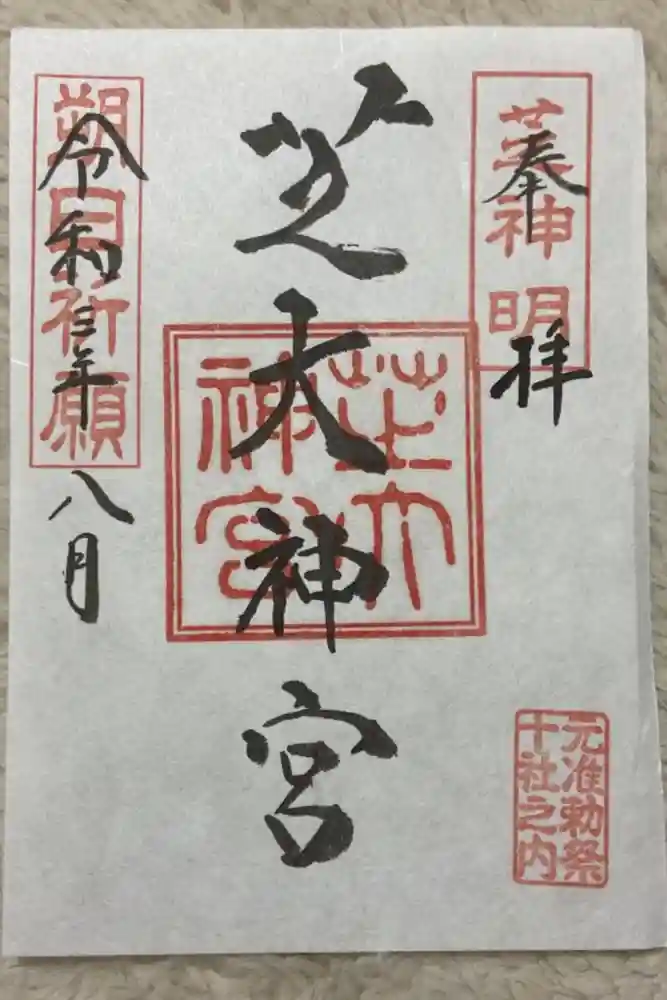 奉拝
芝神明
芝大神宮
芝大神宮
令和三年八月
朔日祈願
元准勅祭
十社之内